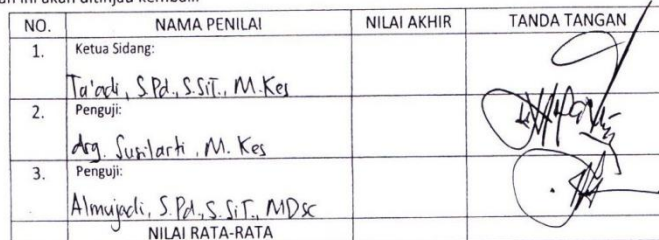 ini akan ditinjau
NO. NAMA PENILAI NILAI AKHIR TANDA TANGAN
1. Ketua Sidang:
Ta'adi, S.Pd., S.SiT., M.Kes
2. Penguji:
drg. Susilarti, M. Kes
3. Penguji:
Almujadi, S.Pd., S.SiT., MDSc
NILAI RATA-RATA